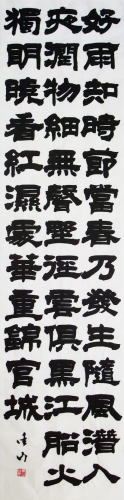 好雨知時節當春乃發生隨風潛入
夜潤物細無聲野徑雲俱黑江船火
獨明曉看紅濕處華重錦官城